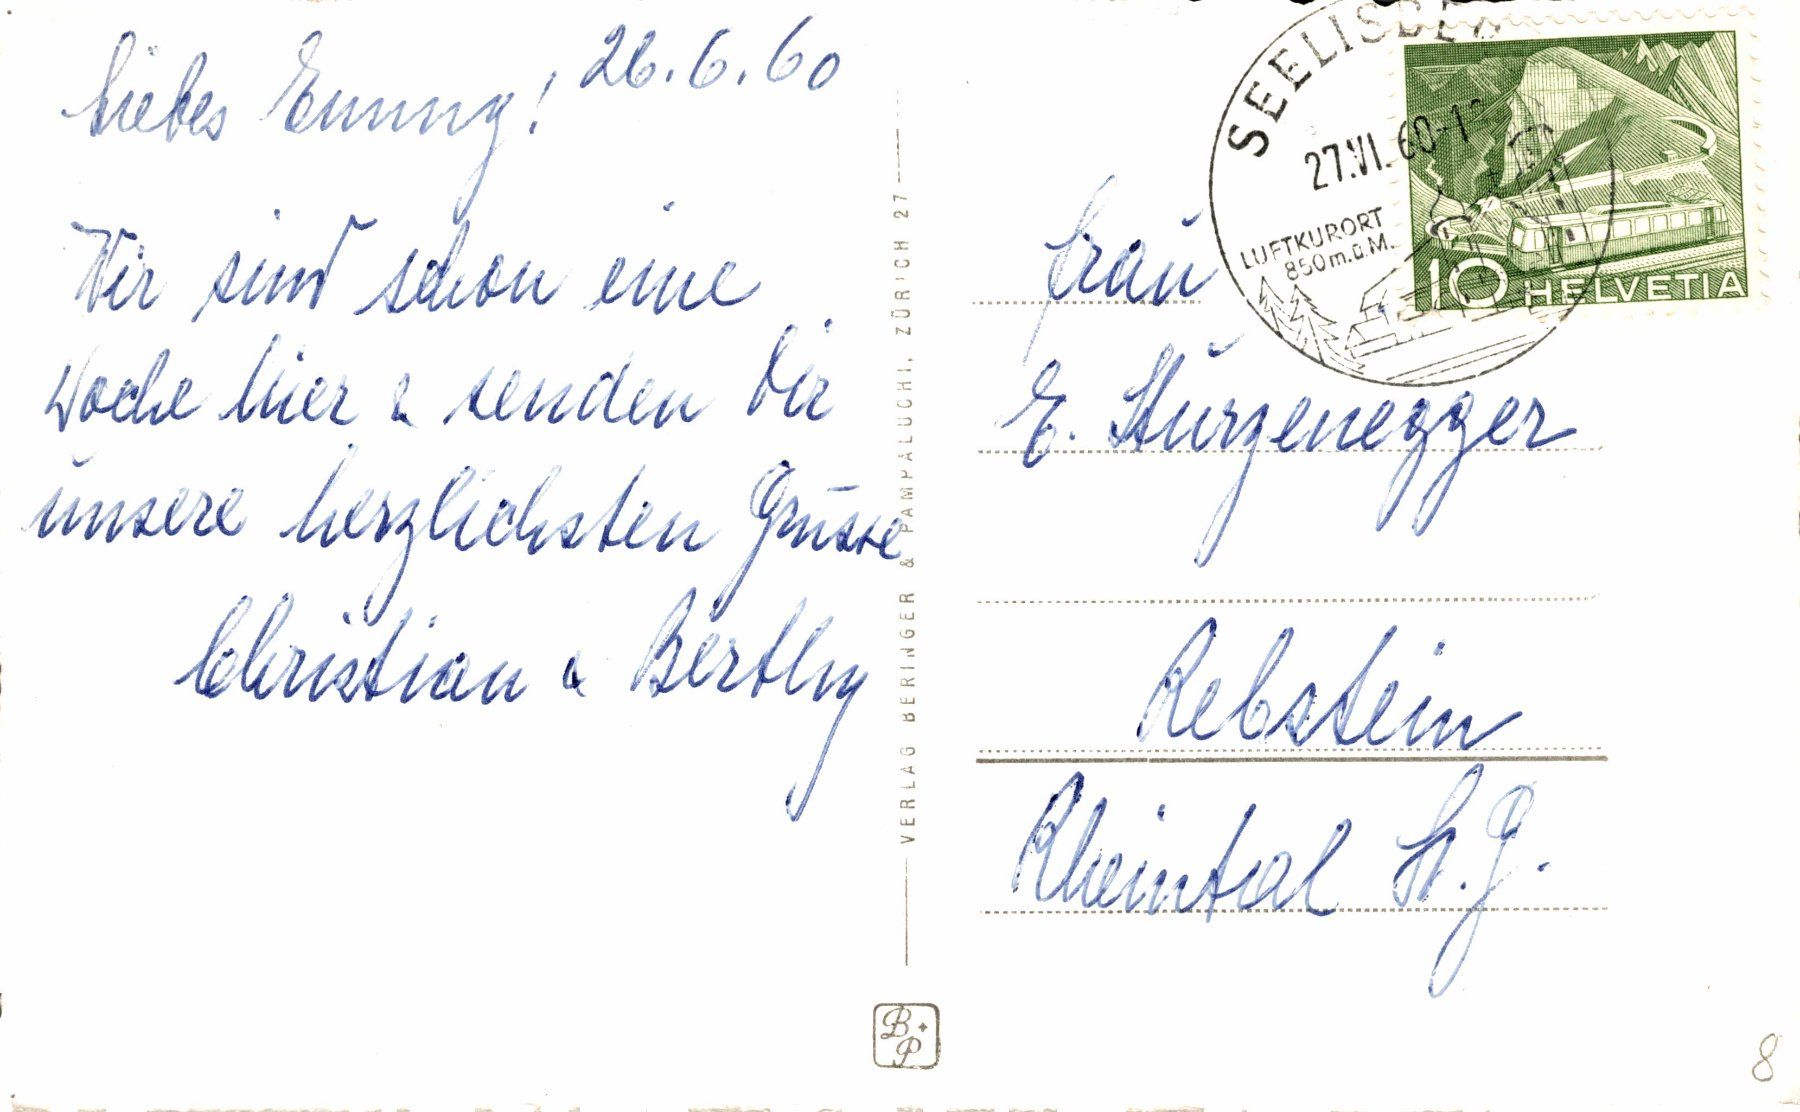 26.6.60
Liebes Emmy!
Wir sind schon eine
Woche hier & senden Dir
unsere herzlichsten Grüsse
Christian & Berthy
VERLAG BERINGER & PAMPALUCHI, ZÜRICH 27
B+P
SEELISBE
27.VI.60-1
LUFTKURORT
850 m.ü.M.
10 HELVETIA
Frau
E. Sturzenegger
Rebstein
Rheintal St. G.
8